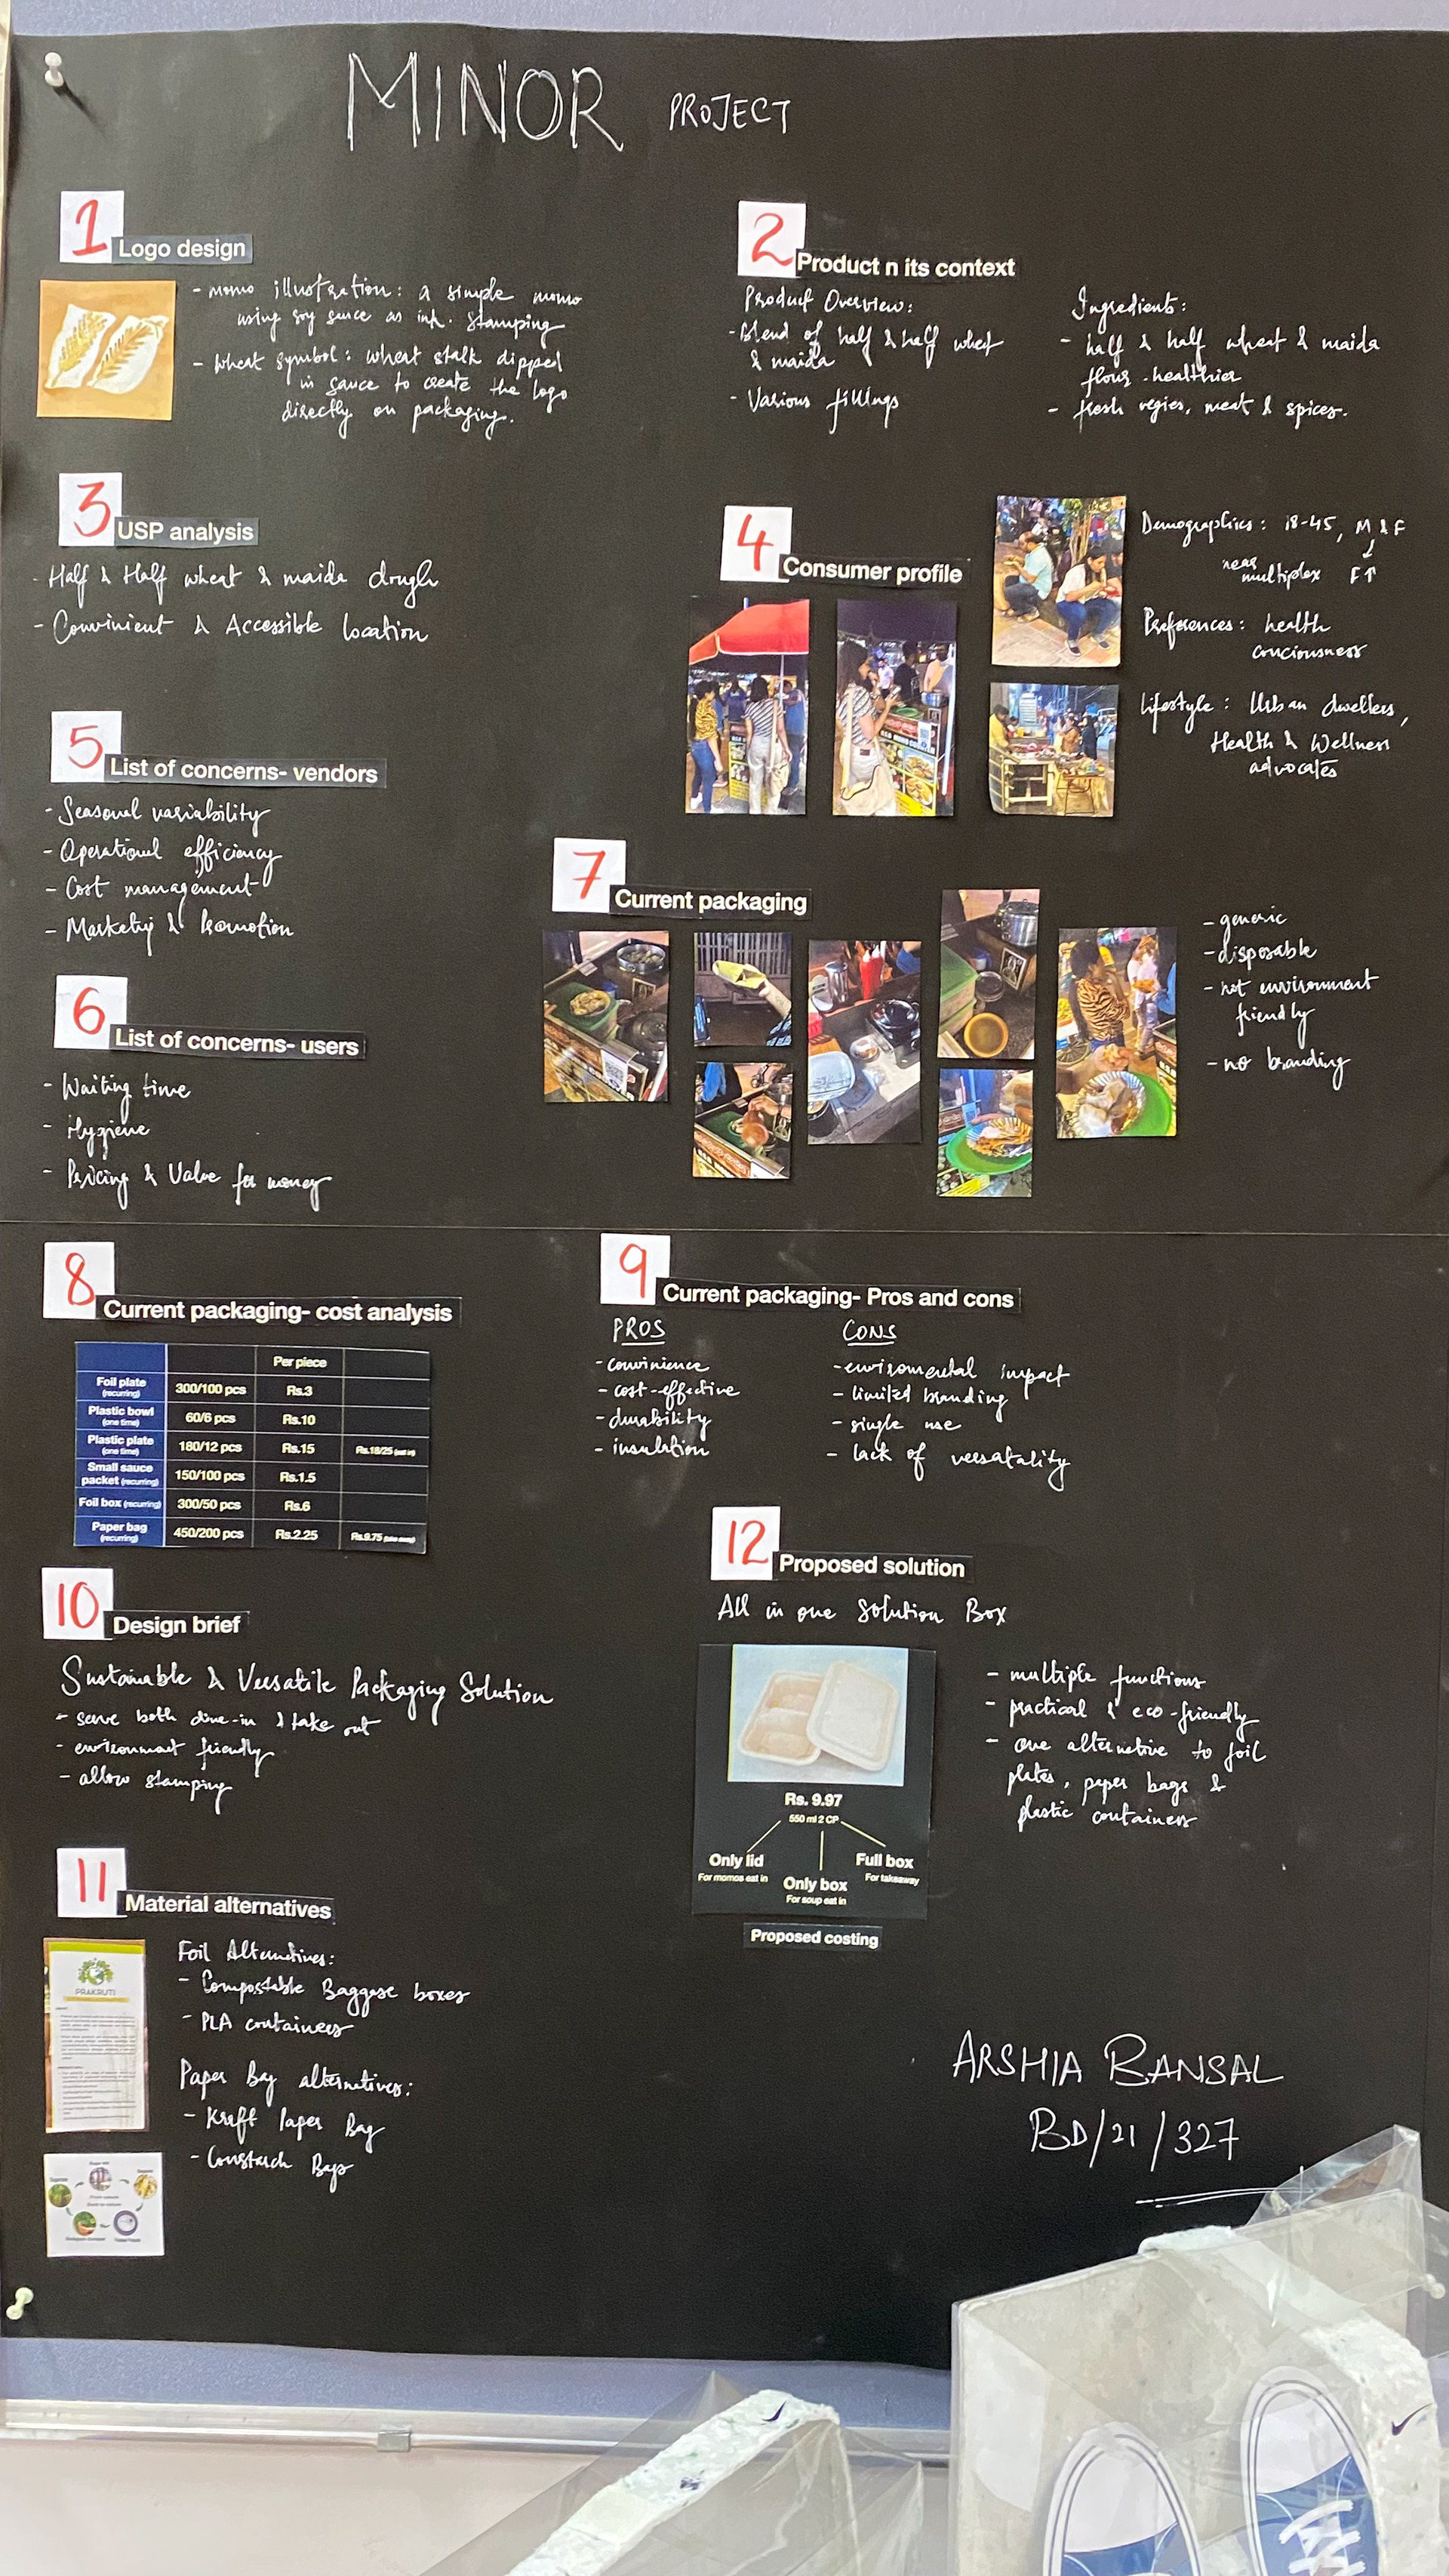 MINOR PROJECT
1
Logo design
- momo illustration: a simple momo
using soy sauce as ink. Stamping
- wheat symbol: wheat stalk dipped
in sauce to create the logo
directly on packaging.
2
Product n its context
Product Overview:
- blend of half & half wheat
& maida
- Various fillings
Ingredients:
- half & half wheat & maida
flour - healthier
- fresh vegies, meat & spices.
3
USP analysis
- Half & Half wheat & maida dough
- Convinient & Accessible location
4
Consumer profile
Demographics: 18-45, M & F
↓
near
multiplex F↑
Preferences: health
conciousness
Lifestyle: Urban dwellers,
Health & Wellness
advocates
5
List of concerns- vendors
- Seasonal variability
- Operational efficiency
- Cost management
- Marketing & Promotion
6
List of concerns- users
- Waiting time
- Hygiene
- Pricing & Value for money
7
Current packaging
- generic
- disposable
- not environment
friendly
- no branding
8
Current packaging- cost analysis
Per piece
Foil plate
(recurring) 300/100 pcs Rs.3
Plastic bowl
(one time) 60/6 pcs Rs.10
Plastic plate
(one time) 180/12 pcs Rs.15 Rs.18/25 (eat in)
Small sauce
packet (recurring) 150/100 pcs Rs.1.5
Foil box (recurring) 300/50 pcs Rs.6
Paper bag
(recurring) 450/200 pcs Rs.2.25 Rs.9.75
9
Current packaging- Pros and cons
PROS
- convinience
- cost-effective
- durability
- insulation
CONS
- enviromental impact
- limited branding
- single use
- lack of versatality
10
Design brief
Sustainable & Versatile Packaging Solution
- serve both dine-in & take out
- environment friendly
- allow stamping
11
Material alternatives
PRAKRUTI
Foil Alternatives:
- Compostable Baggase boxes
- PLA containers
Paper Bag alternatives:
- Kraft Paper Bag
- Cornstarch Bags
12
Proposed solution
All in one Solution Box
Rs. 9.97
550 ml 2 CP
Only lid
For momos eat in
Only box
For soup eat in
Full box
For takeaway
Proposed costing
- multiple functions
- practical & eco-friendly
- one alternative to foil
plates, paper bags &
plastic containers
ARSHIA BANSAL
BD/21/327